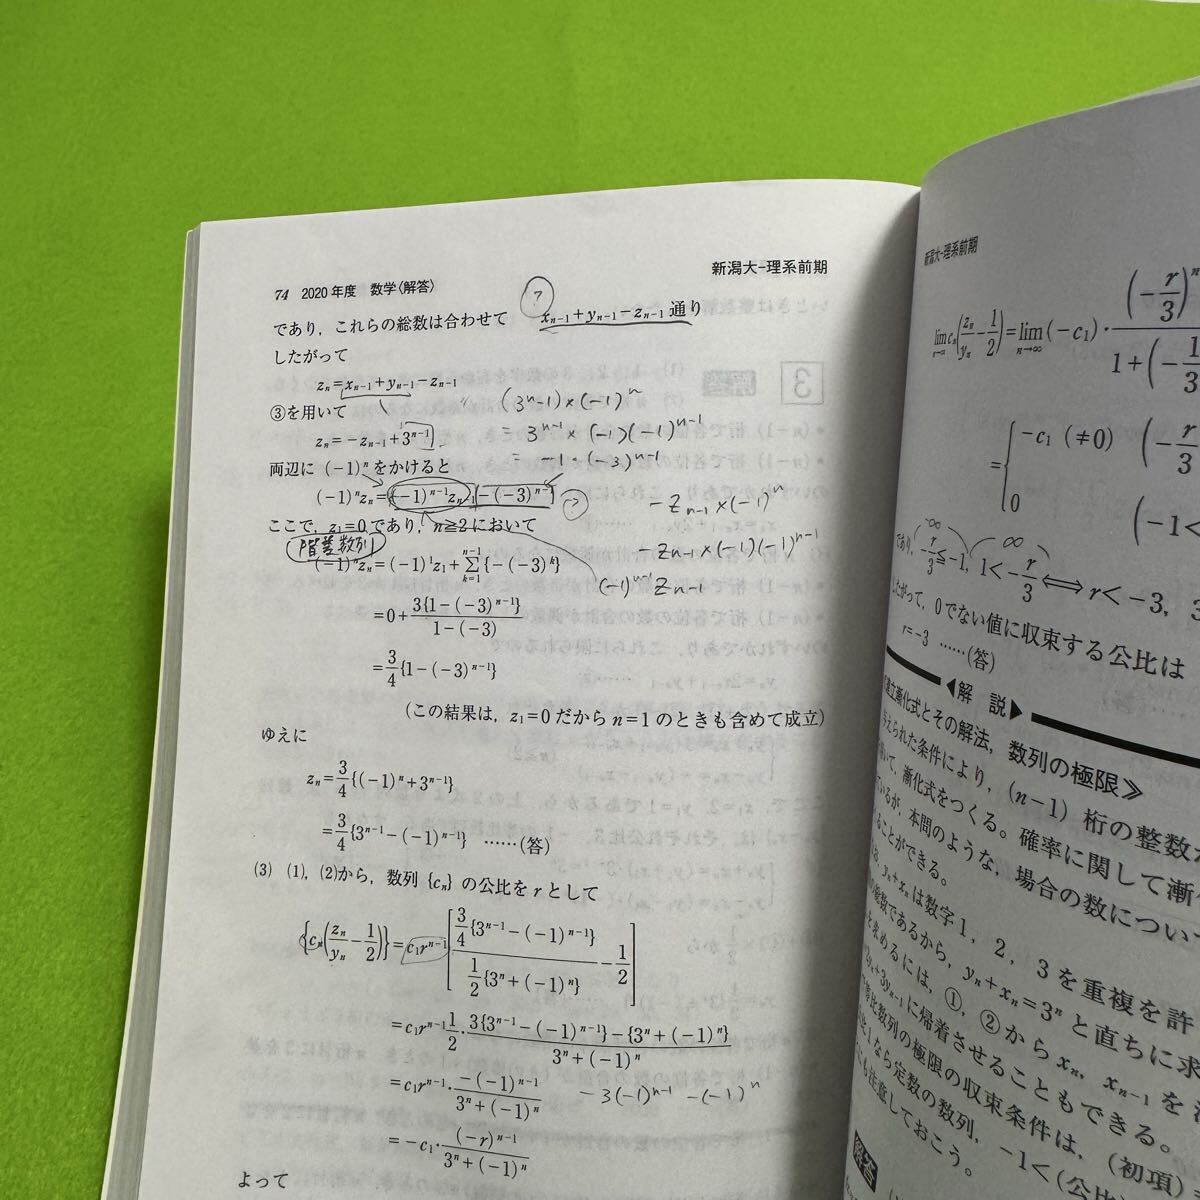 74 2020年度 数学〈解答〉
新潟大-理系前期
?
であり，これらの総数は合わせて x_{n-1}+y_{n-1}-z_{n-1} 通り
したがって
z_n=x_{n-1}+y_{n-1}-z_{n-1}
③を用いて
z_n=-z_{n-1}+3^{n-1}
両辺に (-1)^n をかけると
(-1)^n z_n=(-1)^{n-1}z_{n-1}-(-3)^{n-1}
?
ここで，z_1=0 であり，n≧2 において
階差数列
(-1)^n z_n=(-1)^1 z_1+Σ_{k=1}^{n-1}{-(-3)^k}
=0+\frac{3{1-(-3)^{n-1}}}{1-(-3)}
=\frac{3}{4}{1-(-3)^{n-1}}
(この結果は，z_1=0 だから n=1 のときも含めて成立)
ゆえに
z_n=\frac{3}{4}{(-1)^n+3^{n-1}}
=\frac{3}{4}{3^{n-1}-(-1)^{n-1}} ……(答)
(3) (1), (2)から，数列 {c_n} の公比を r として
{c_n(\frac{z_n}{y_n}-\frac{1}{2})}=c_1r^{n-1}[\frac{\frac{3}{4}{3^{n-1}-(-1)^{n-1}}}{\frac{1}{2}{3^n+(-1)^n}}-\frac{1}{2}]
=c_1r^{n-1}\frac{1}{2}・\frac{3{3^{n-1}-(-1)^{n-1}}-{3^n+(-1)^n}}{3^n+(-1)^n}
=c_1r^{n-1}・\frac{-(-1)^{n-1}}{3^n+(-1)^n}
-3(-1)^{n-1}-(-1)^n
=-c_1・\frac{(-r)^{n-1}}{3^n+(-1)^n}
よって
(3^n-1)×(-1)^n
=3^{n-1}×(-1)(-1)^{n-1}
=-1・(-3)^{n-1}
-z_{n-1}×(-1)^n
-z_{n-1}×(-1)(-1)^{n-1}
(-1)^{n-1}z_{n-1}
新潟大-理系前期
\lim_{n→∞}c_n(\frac{z_n}{y_n}-\frac{1}{2})=\lim_{n→∞}(-c_1)・\frac{(-\frac{r}{3})^n}{1+(-\frac{1}{3}
={-c_1 (≠0) (-\frac{r}{3}
0 (-1<
-∞ ∞
であり，-\frac{r}{3}≦-1, 1<-\frac{r}{3}⟺r<-3, 3
したがって，0でない値に収束する公比は
r=-3 ……(答)
◀解 説▶
漸化式とその解法，数列の極限≫
与えられた条件により，(n-1) 桁の整数
いて，漸化式をつくる。確率に関して漸
ているが，本問のような，場合の数につい
ることができる。
y_n+x_n は数字 1, 2, 3 を重複を許
の総数であるから，y_n+x_n=3^n と直ちに求
を求めるには，①，②から x_n, x_{n-1} を
+3y_{n-1} に帰着させることもできる。
等比数列の極限の収束条件は，(初項)
1 なら定数の数列，-1<(公比
にも注意しておこう。
解答